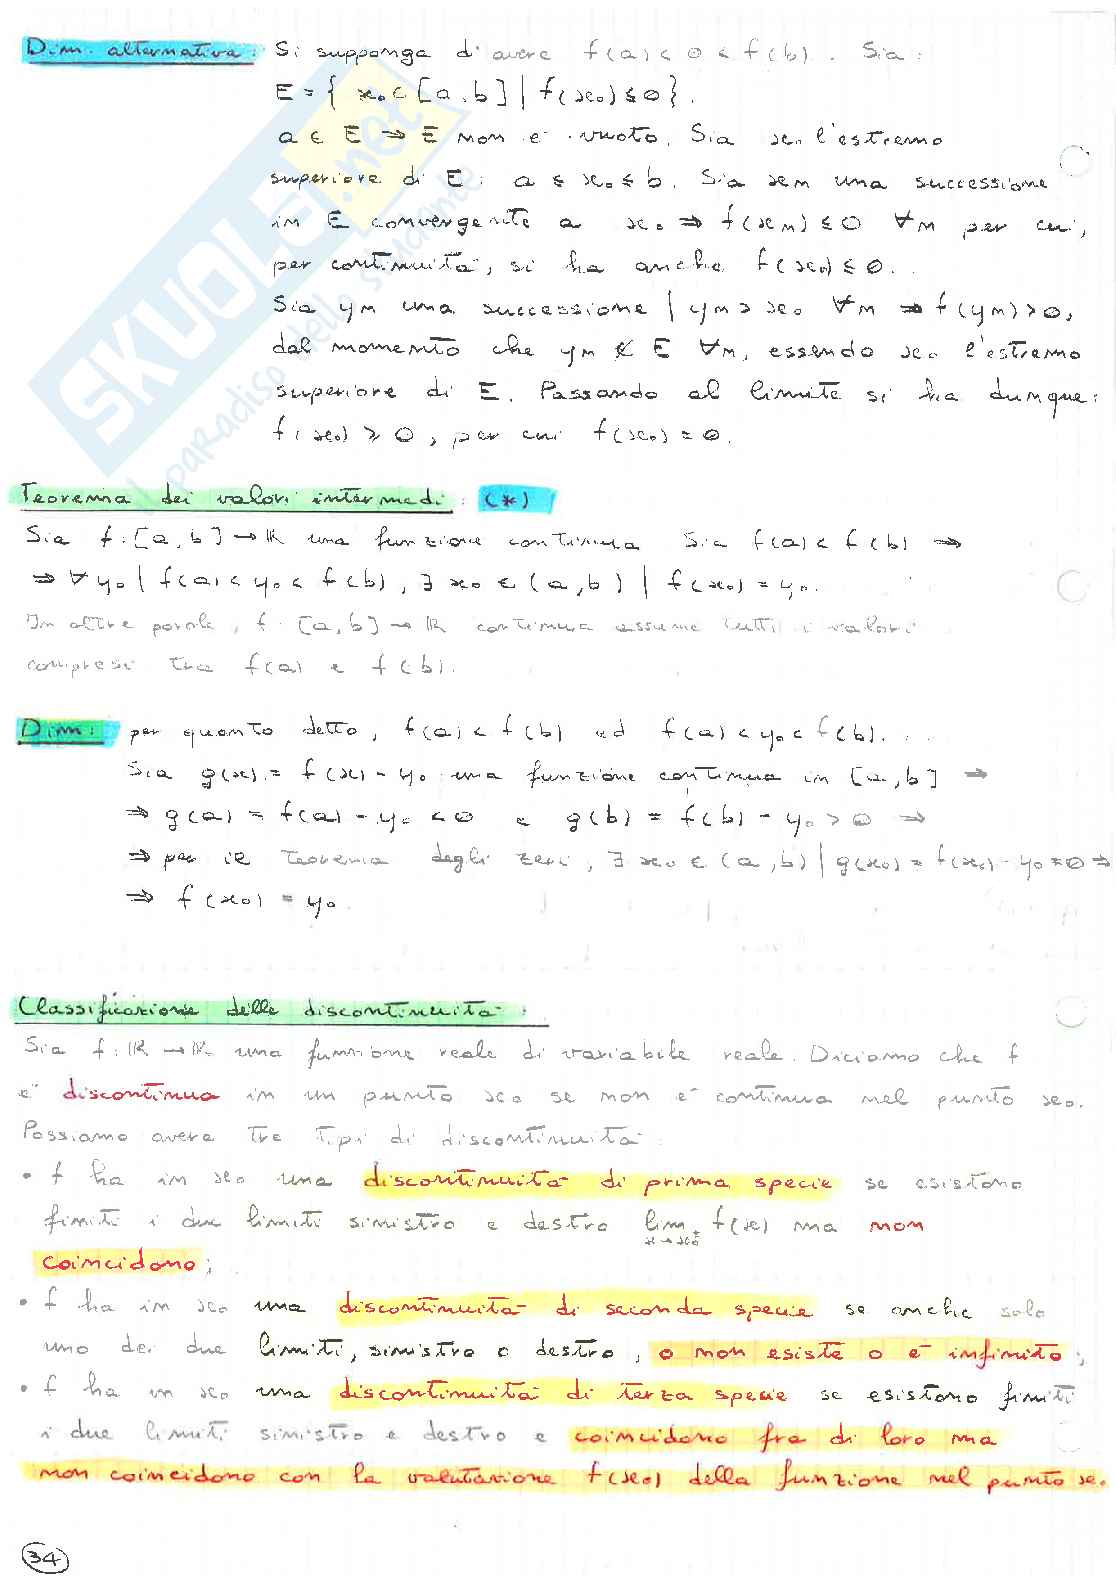 Dim. alternativa: Si supponga di avere f(a) < 0 < f(b). Sia:
E = { x₀ ∈ [a,b] | f(x₀) ≤ 0 }.
a ∈ E ⇒ E non è vuoto. Sia x₀ l'estremo
superiore di E: a ≤ x₀ ≤ b. Sia xn una successione
in E convergente a x₀ ⇒ f(xn) ≤ 0 ∀n per cui,
per continuità, si ha anche f(x₀) ≤ 0.
Sia yn una successione | yn > x₀ ∀n ⇒ f(yn) > 0,
dal momento che yn ∉ E ∀n, essendo x₀ l'estremo
superiore di E. Passando al limite si ha dunque:
f(x₀) ≥ 0, per cui f(x₀) = 0.
Teorema dei valori intermedi: (*)
Sia f: [a,b] → ℝ una funzione continua Sia f(a) < f(b) ⇒
⇒ ∀ y₀ | f(a) < y₀ < f(b), ∃ x₀ ∈ (a,b) | f(x₀) = y₀.
In altre parole, f: [a,b] → ℝ continua assume tutti i valori
compresi tra f(a) e f(b).
Dim: per quanto detto, f(a) < f(b) ed f(a) < y₀ < f(b).
Sia g(x) = f(x) - y₀ una funzione continua in [a,b] ⇒
⇒ g(a) = f(a) - y₀ < 0 e g(b) = f(b) - y₀ > 0 ⇒
⇒ per il Teorema degli zeri, ∃ x₀ ∈ (a,b) | g(x₀) = f(x₀) - y₀ = 0 ⇒
⇒ f(x₀) = y₀.
Classificazione delle discontinuità:
Sia f: ℝ → ℝ una funzione reale di variabile reale. Diciamo che f
è discontinua in un punto x₀ se non è continua nel punto x₀.
Possiamo avere tre tipi di discontinuità:
• f ha in x₀ una discontinuità di prima specie se esistono
finiti i due limiti sinistro e destro lim x→x₀± f(x) ma non
coincidono;
• f ha in x₀ una discontinuità di seconda specie se anche solo
uno dei due limiti, sinistro o destro, o non esiste o è infinito;
• f ha in x₀ una discontinuità di terza specie se esistono finiti
i due limiti sinistro e destro e coincidono fra di loro ma
non coincidono con la valutazione f(x₀) della funzione nel punto x₀.
34
SKUOLA.net
il paradiso dello studente